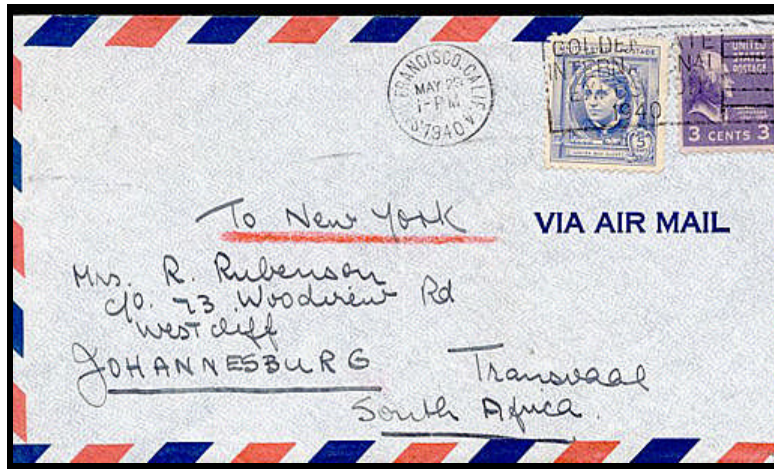 FRANCISCO, CALIF.
MAY 29
1-PM
1940
GOLDEN GATE
1940
UNITED
STATES
POSTAGE
3 CENTS 3
5
To New York
VIA AIR MAIL
Mrs. R. Rubenson
c/o. 73 Woodview Rd
Westcliff
JOHANNESBURG
Transvaal
South Africa.